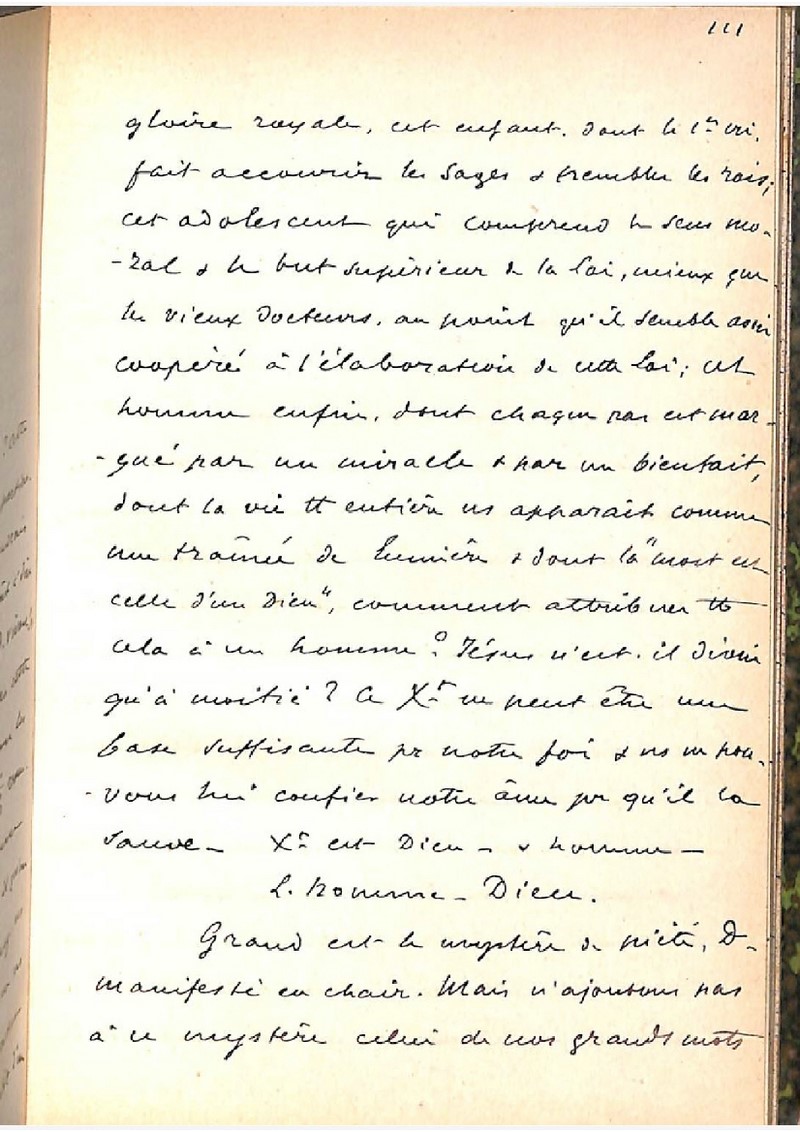 111
gloire royale, cet enfant, dont le 1er cri,
fait accourir les Sages & trembler les rois;
cet adolescent qui comprend le sens mo-
-ral & le but supérieur de la loi, mieux que
les vieux Docteurs, au point qu'il semble avoir
coopéré à l'élaboration de cette loi; cet
homme enfin, dont chaque pas est mar-
-qué par un miracle & par un bienfait,
dont la vie tt entière ns apparaît comme
une traînée de lumière & dont la "mort est
celle d'un Dieu", comment attribuer tt
cela à un homme? Jésus n'est-il divin
qu'à moitié? Ce Xt ne peut être une
base suffisante pr notre foi & ns ne pou-
-vons lui confier notre âme pr qu'il la
sauve- Xt est Dieu - & homme -
L'homme-Dieu.
Grand est le mystère de piété, D-
manifesté en chair. Mais n'ajoutons pas
à ce mystère celui de nos grands mots